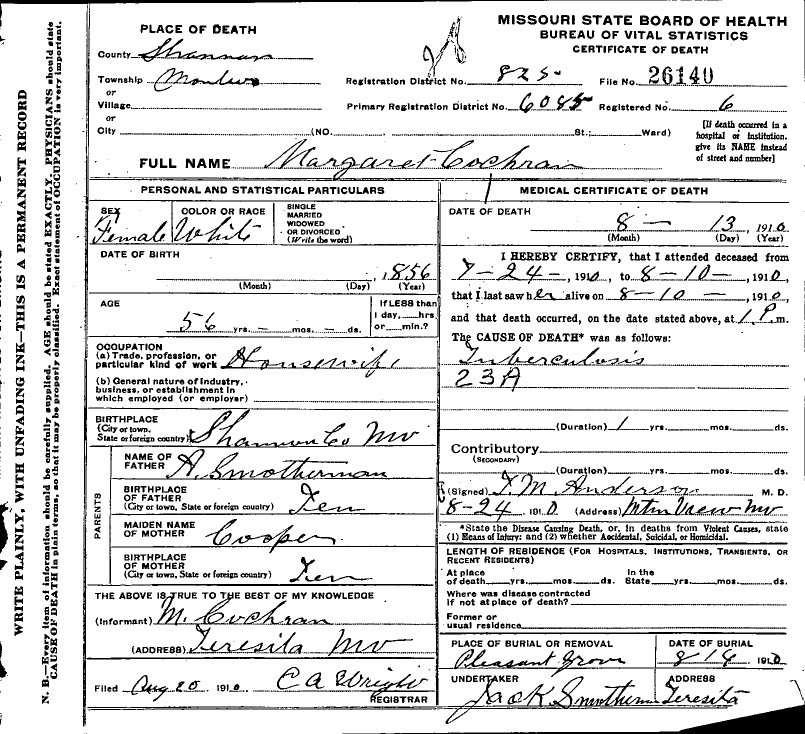 MISSOURI STATE BOARD OF HEALTH
BUREAU OF VITAL STATISTICS
CERTIFICATE OF DEATH
PLACE OF DEATH
County Shannon
Township
or
Village
or
City (NO. St.; Ward)
Registration District No. 825 File No. 26140
Primary Registration District No. 6085 Registered No. 6
[If death occurred in a
hospital or institution,
give its NAME instead
of street and number]
FULL NAME Margaret Cochran
PERSONAL AND STATISTICAL PARTICULARS
SEX
Female
COLOR OR RACE
White
SINGLE
MARRIED
WIDOWED
OR DIVORCED
(Write the word)
DATE OF BIRTH
, 1856
(Month) (Day) (Year)
AGE
56 yrs. – mos. – ds.
If LESS than
1 day, hrs.
or min.?
OCCUPATION
(a) Trade, profession, or
particular kind of work Housewife
(b) General nature of Industry,
business, or establishment in
which employed (or employer)
BIRTHPLACE
(City or town,
State or foreign country) Shannon Co Mo
PARENTS
NAME OF
FATHER A. Smotherman
BIRTHPLACE
OF FATHER
(City or town, State or foreign country) Ten
MAIDEN NAME
OF MOTHER Cooper
BIRTHPLACE
OF MOTHER
(City or town, State or foreign country) Ten
THE ABOVE IS TRUE TO THE BEST OF MY KNOWLEDGE
(Informant) M. Cochran
(ADDRESS) Teresita Mo
Filed Aug 20 1910 C A Wright
REGISTRAR
MEDICAL CERTIFICATE OF DEATH
DATE OF DEATH
8 – 13 , 1910
(Month) (Day) (Year)
I HEREBY CERTIFY, that I attended deceased from
7-24-, 1910, to 8-10-, 1910,
that I last saw her alive on 8-10-, 1910,
and that death occurred, on the date stated above, at 1 P. m.
The CAUSE OF DEATH* was as follows:
Tuberculosis
23A
(Duration) 1 yrs. mos. ds.
Contributory
(SECONDARY)
(Duration) yrs. mos. ds.
(Signed) J. M. Anderson M. D.
8-24 1910 (Address) Mtn View Mo
*State the Disease Causing Death, or, in deaths from Violent Causes, state
(1) Means of Injury; and (2) whether Accidental, Suicidal, or Homicidal.
LENGTH OF RESIDENCE (FOR HOSPITALS, INSTITUTIONS, TRANSIENTS, OR
RECENT RESIDENTS)
At place
of death yrs. mos. ds.
In the
State yrs. mos. ds.
Where was disease contracted
if not at place of death?
Former or
usual residence
PLACE OF BURIAL OR REMOVAL
Pleasant Grove
DATE OF BURIAL
8 14 1910
UNDERTAKER
Jack Smotherman
ADDRESS
Teresita
WRITE PLAINLY, WITH UNFADING INK—THIS IS A PERMANENT RECORD
N. B.—Every item of information should be carefully supplied. AGE should be stated EXACTLY. PHYSICIANS should state
CAUSE OF DEATH in plain terms, so that it may be properly classified. Exact statement of OCCUPATION is very important.